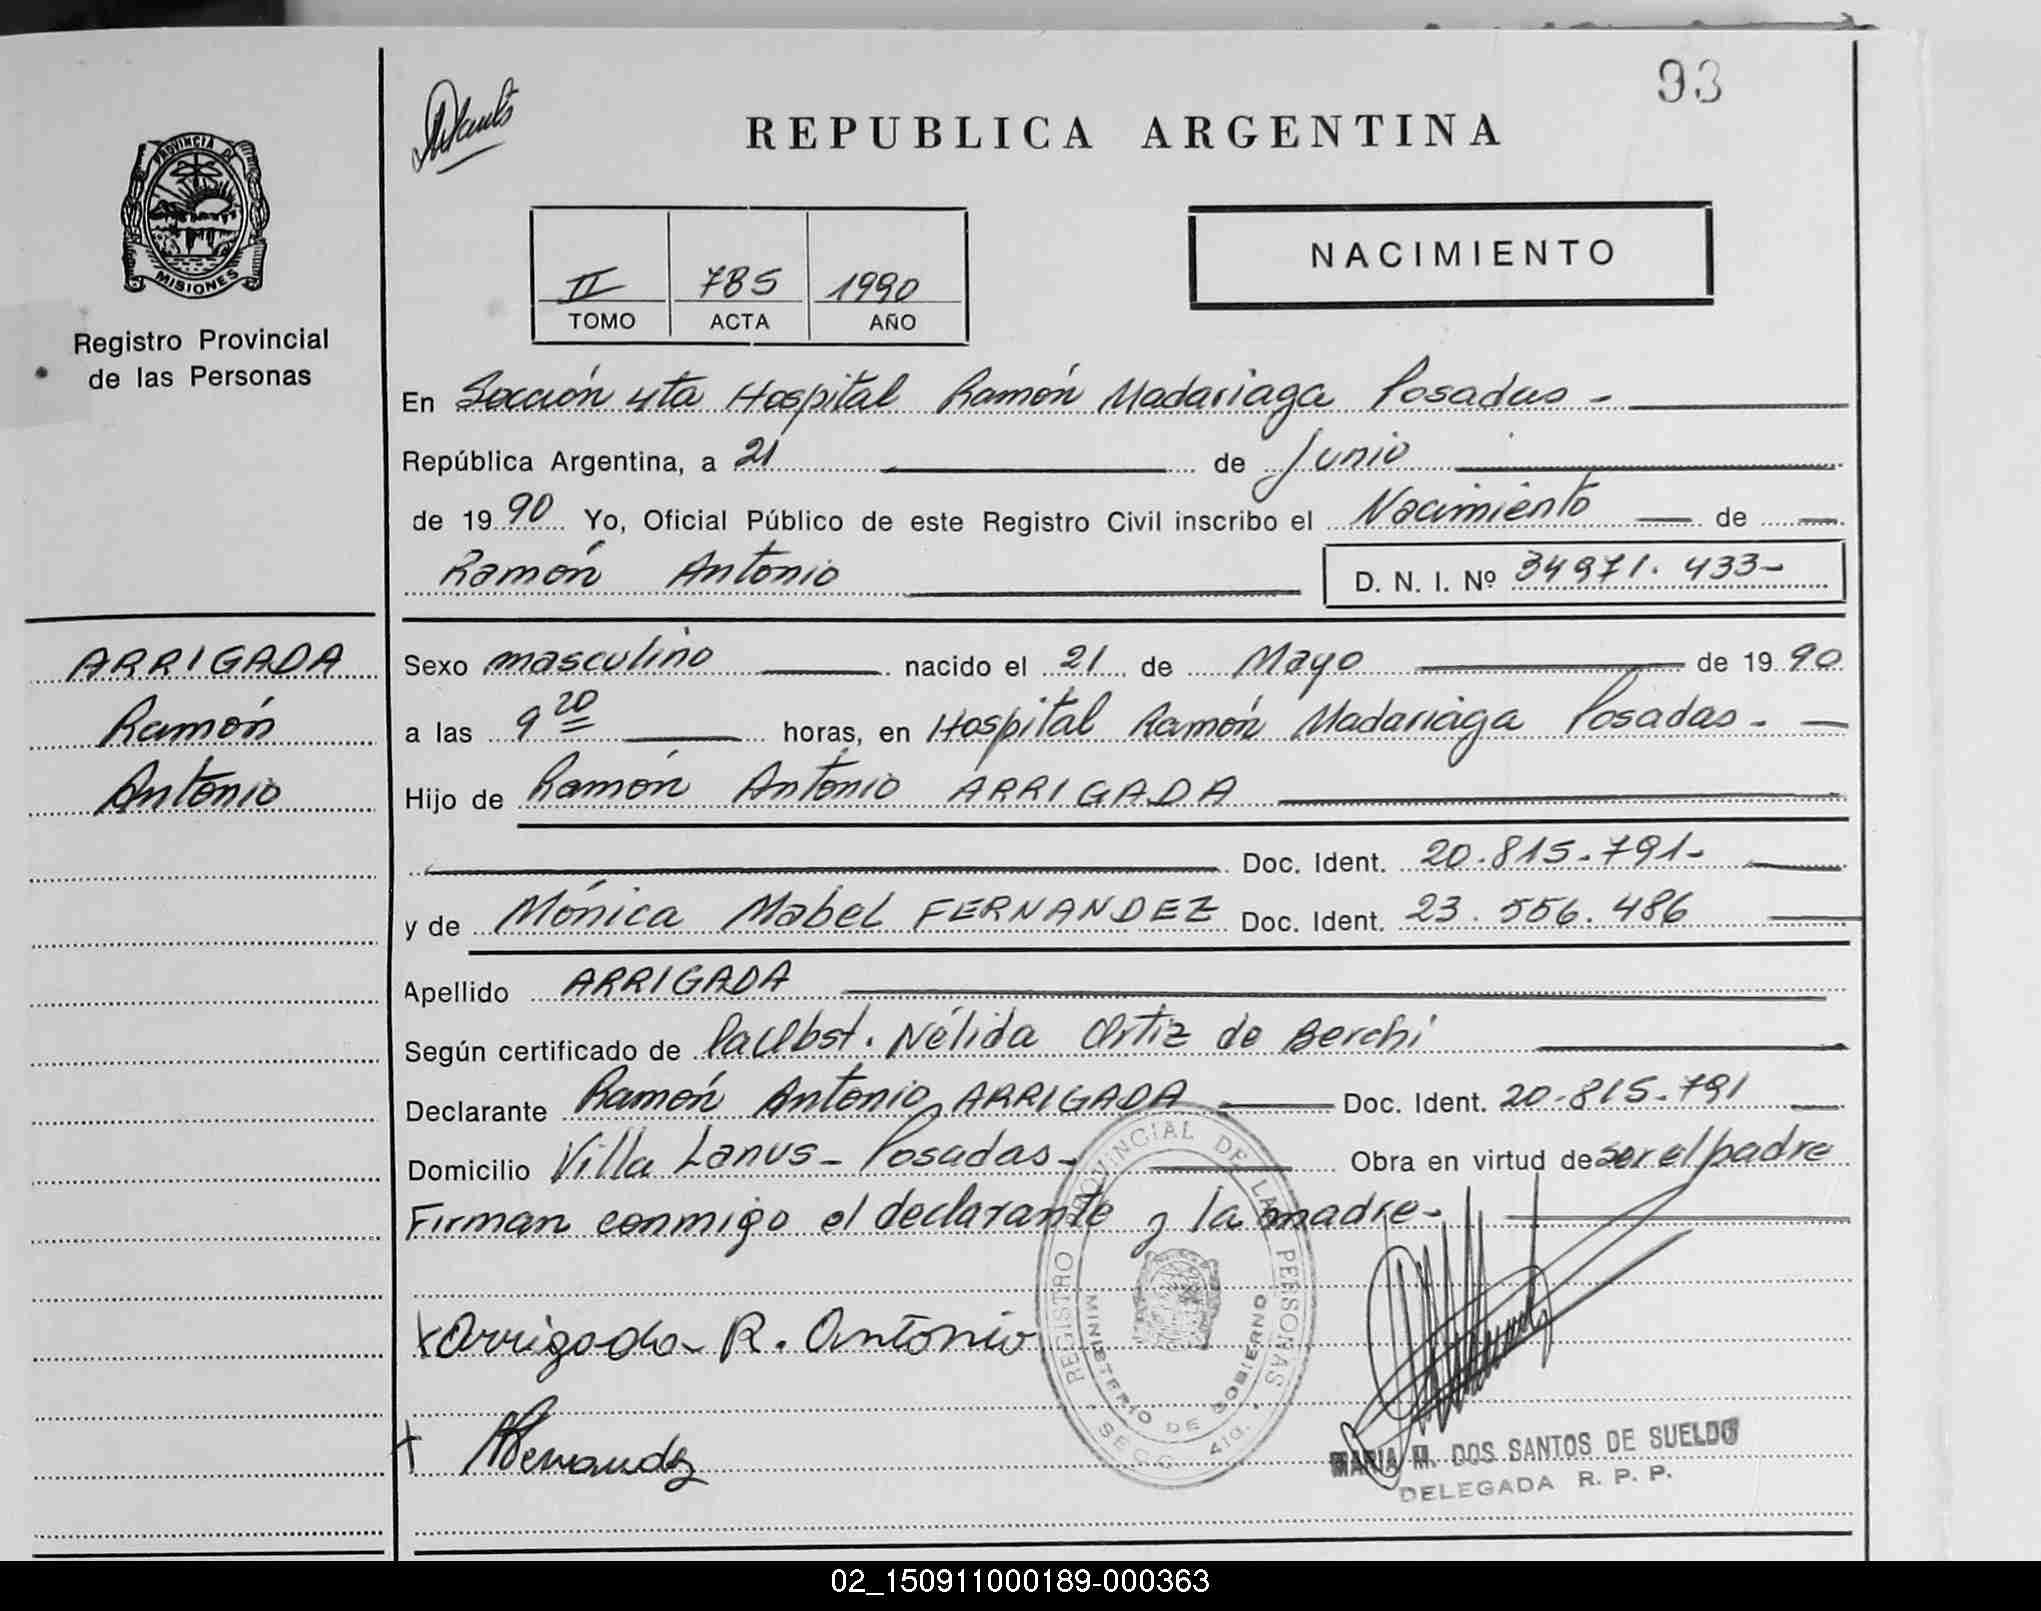 93
REPUBLICA ARGENTINA
PROVINCIA DE
MISIONES
Registro Provincial
de las Personas
II 785 1990
TOMO ACTA AÑO
NACIMIENTO
En Sección 4ta Hospital Ramón Madariaga Posadas -
República Argentina, a 21 de Junio
de 1990 Yo, Oficial Público de este Registro Civil inscribo el Nacimiento de
Ramón Antonio D. N. I. Nº 34971.433-
ARRIGADA
Ramón
Antonio
Sexo masculino nacido el 21 de Mayo de 1990
a las 9 20 horas, en Hospital Ramón Madariaga Posadas -
Hijo de Ramón Antonio ARRIGADA
Doc. Ident. 20.815.791-
y de Mónica Mabel FERNANDEZ Doc. Ident. 23.556.486
Apellido ARRIGADA
Según certificado de Nélida Ortiz de Berchi
Declarante Ramón Antonio ARRIGADA Doc. Ident. 20.815.791
Domicilio Villa Lanus - Posadas - Obra en virtud de ser el padre
Firman conmigo el declarante y la madre -
Arrigada R. Antonio
REGISTRO PROVINCIAL DE LAS PERSONAS
MINISTERIO DE GOBIERNO
SECC. 4ta.
MARIA M. DOS SANTOS DE SUELDO
DELEGADA R. P. P.
02_150911000189-000363